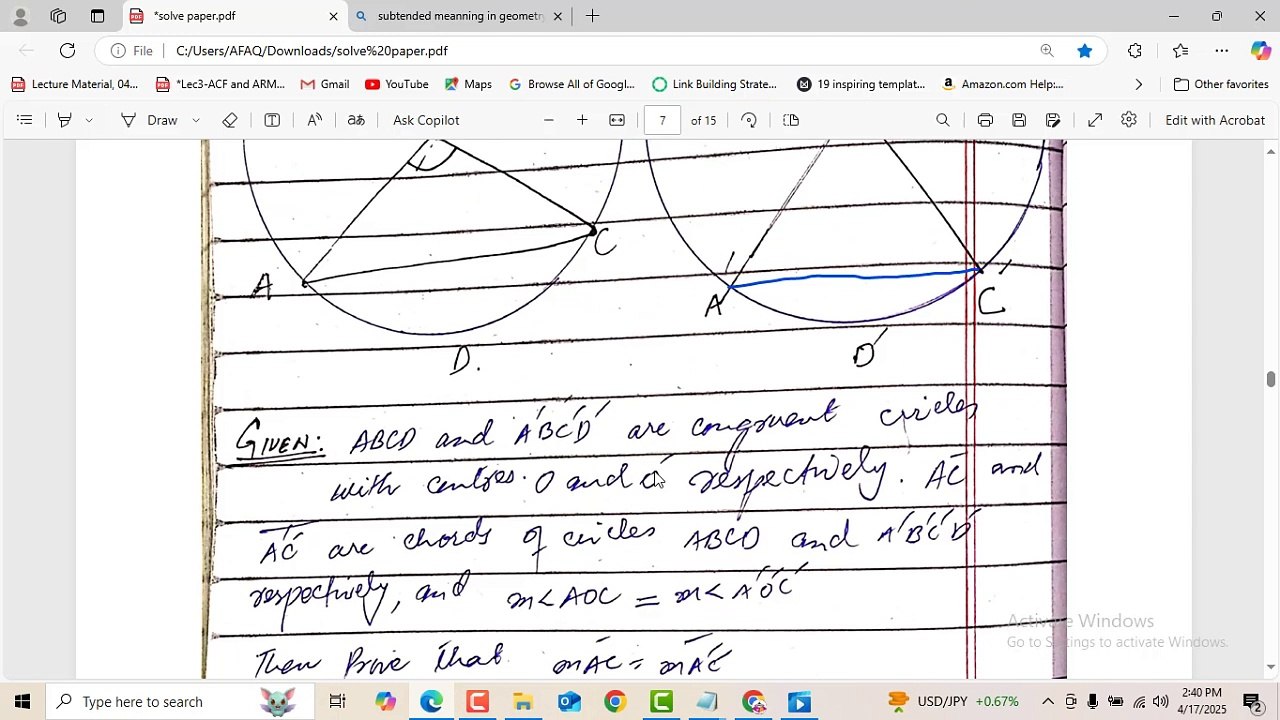 *solve paper.pdf
subtended meaning in geometry
File
C:/Users/AFAQ/Downloads/solve%20paper.pdf
Lecture Material, 04...
*Lec3-ACF and ARM...
Gmail
YouTube
Maps
Browse All of Googl...
Link Building Strate...
19 inspiring templat...
Amazon.com Help:...
Other favorites
Draw
aあ
Ask Copilot
7
of 15
Edit with Acrobat
C
A
A'
C'
D.
D'
GIVEN: ABCD and A'B'C'D' are congruent circles
with centres O and O' respectively. AC and
A'C' are chords of circles ABCD and A'B'C'D'
respectively, and m<AOC = m<A'O'C'
Then Prove that mAC = mA'C'
Activate Windows
Go to Settings to activate Windows.
Type here to search
USD/JPY +0.67%
2:40 PM
4/17/2025
2